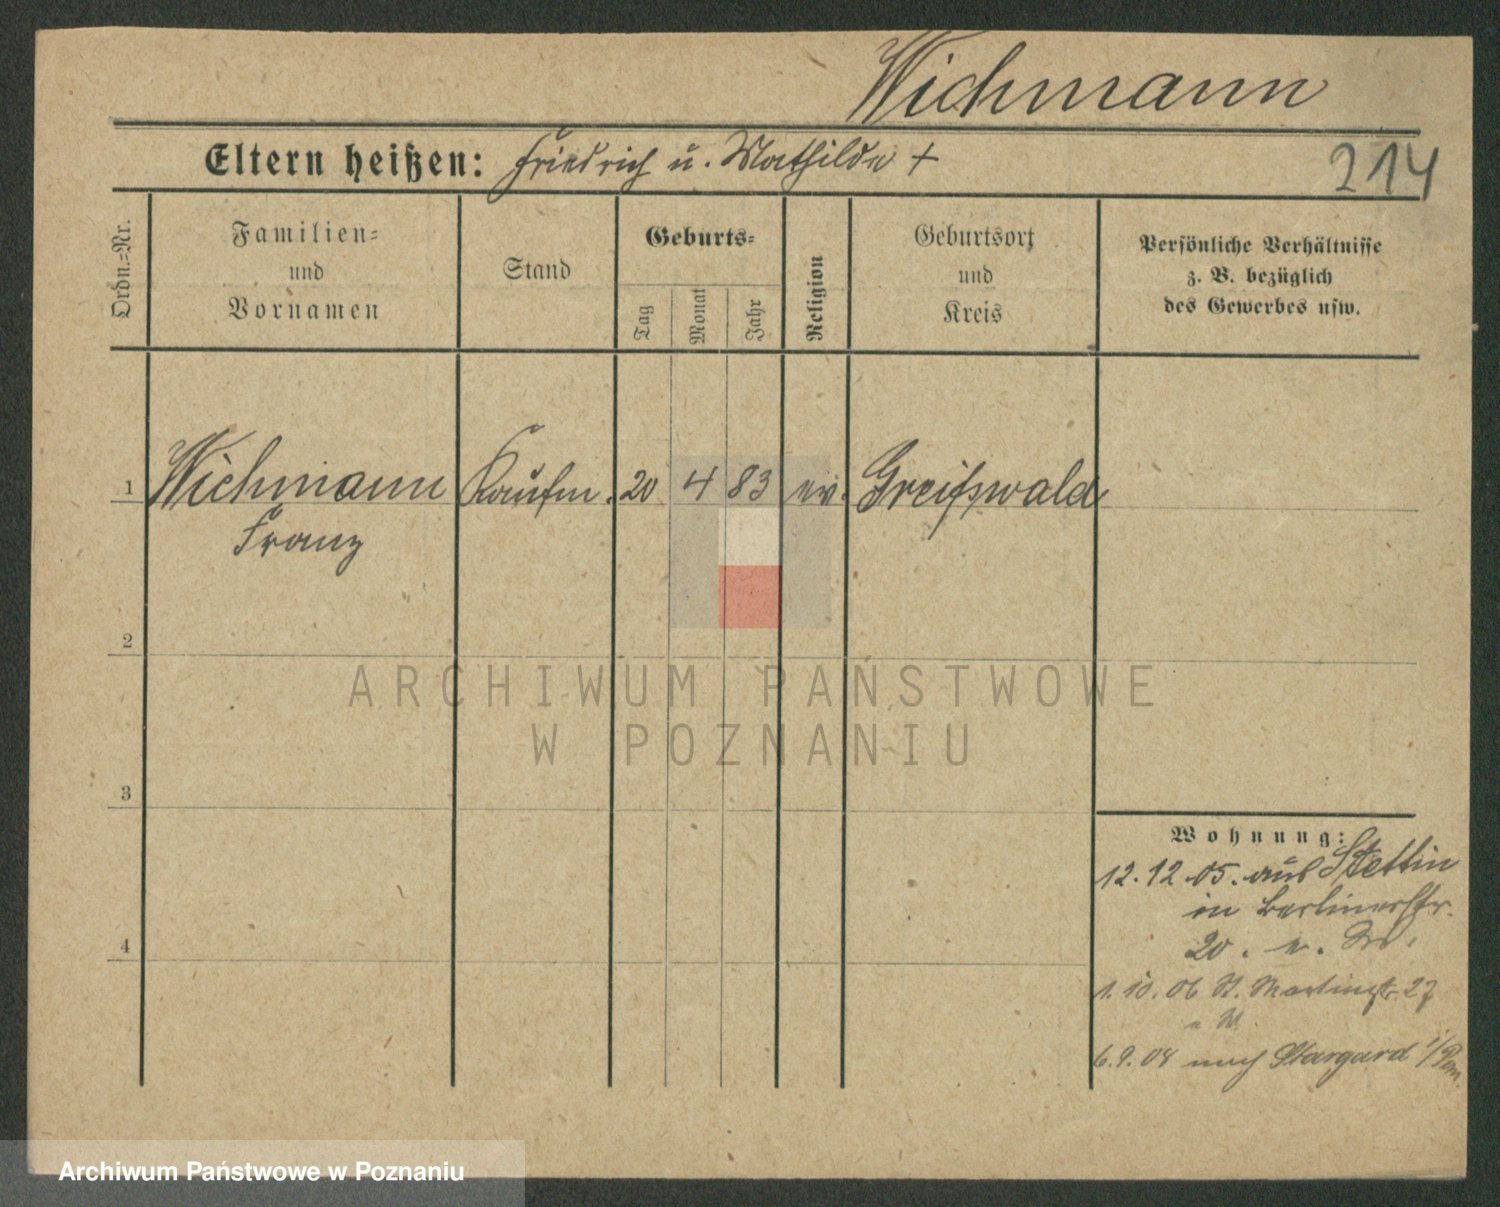 Wichmann
Eltern heißen: Friedrich u. Mathilde +
214
Ordn.=Nr.
Familien=
und
Vornamen
Stand
Geburts=
Tag
Monat
Jahr
Religion
Geburtsort
und
Kreis
Persönliche Verhältnisse
z. B. bezüglich
des Gewerbes usw.
1 Wichmann Kaufm. 20 4 83 ev. Greifswald
Franz
2
3
4
ARCHIWUM PAŃSTWOWE
W POZNANIU
Wohnung:
12.12.05. aus Stettin
in Berlinerstr.
20.
1.10.06 St. Martinstr. 27
6.9.08 nach Stargard i/Pom.
Archiwum Państwowe w Poznaniu